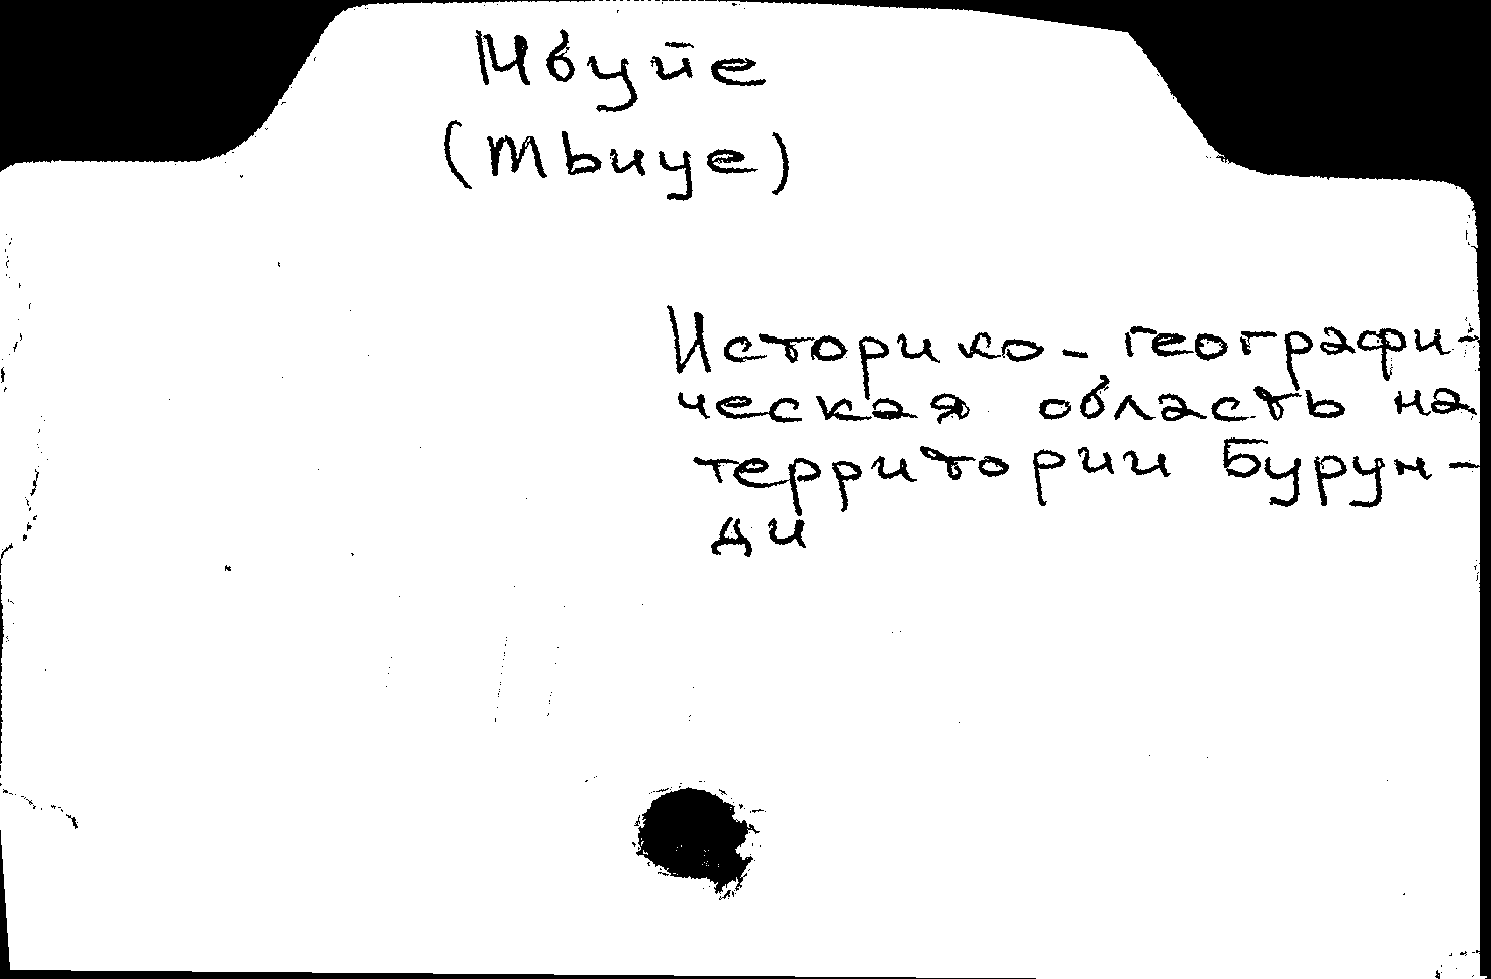 Мбуйе
(mbuye)
Историко-географи-
ческая область на
территории Бурун-
ди